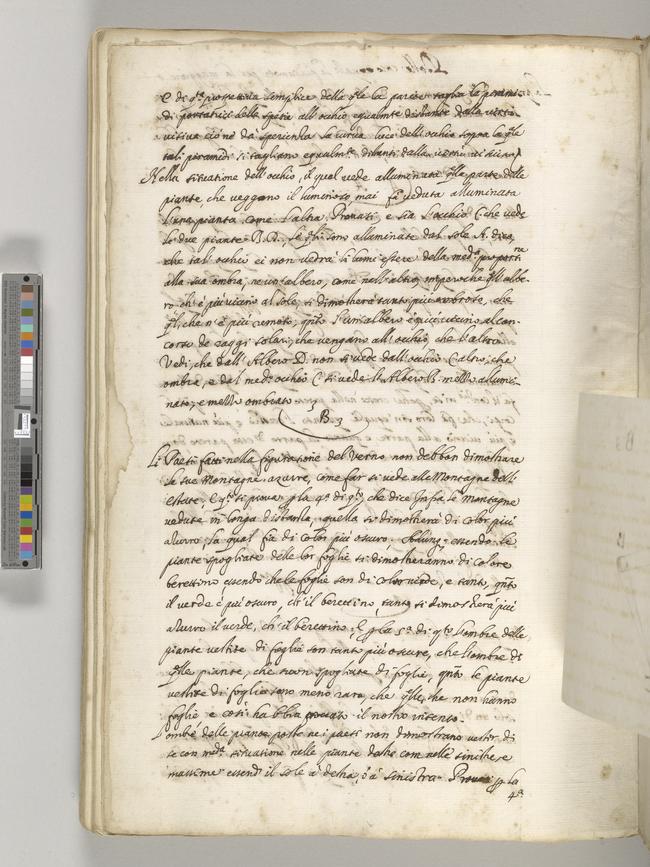 E di q.ᵗᵒ prospettiva semplice della q.ˡᵉ la parete taglia la
di portatrici delle spetie all'occhio equalm.ᵗᵉ distante dalla virtù
visiva ciò ne dà sperienza la curva luce dell'occhio sopra la q.ˡᵉ
tali piramidi si tagliano equalm.ᵗᵉ distanti dalla virtù
Nella situatione dell'occhio, il qual vede alluminata q.ˡˡᵃ parte delle
piante che veggono il luminoso, mai fia veduta alluminata
l'una pianta come l'altra. Provasi, e sia l'occhio C. che vede
le due piante B.D., le q.ˡⁱ sono alluminate dal sole A. dico,
che tal'occhio ei non vedrà li lumi essere della med.ᵃ proport.ⁿᵉ
alla sua ombra, ne un'albero, come nell'altro, imperoche q.ˡˡ'albe-
ro ch'è più vicino al sole, si dimostrerà tanto più umbroso, che
q.ˡˡᵒ, che n'è più remoto, q.ᵗᵒ l'un'albero è più vicino al con-
corso de raggi solari, che vengano all'occhio, che l'altro.
Vedi, che dall'Albero D. non si vede dall'occhio C. altro, che
ombre, e dal med.ᵒ occhio C. si vede l'Albero B. mezzo allumi-
nato, e mezzo ombrato.
B
Li Paesi fatti nella figuratione del Verno non debban dimostrare
le sue Montagne azurre, come far si vede alle Montagne dell'
Estate, E q.ᵗᵒ si prova p la 4.ᵃ di q.ᵗᵒ che dice Infra le montagne
vedute in longa distantia, quella si dimostrerà di color più
azurro, la qual fia di color più oscuro. essendo le
piante spogliate delle lor foglie si dimostreranno di colore
berettino essendo che le foglie son di color verde, e tanto, q.ᵗᵒ
il verde è più oscuro, ch'il berettino, tanto si dimostrerà più
azurro il verde, ch'il berettino; E p la 5.ᵃ di q.ᵗᵒ l'ombre delle
piante vestite di foglie son tanto più oscure, che l'ombre di
q.ˡˡᵉ piante, che sian spogliate di foglie, q.ᵗᵒ le piante
vestite di foglie sono meno rare, che q.ˡˡᵉ, che non hanno
foglie e così habbia provato il nostro intento.
L'ombre delle piante poste ne i paesi non dimostrano vestir di
se con med.ᵃ situatione nelle piante destre com nelle sinistre, e
massime essendo il sole à destra, ò à sinistra Provasi p la
4.ᵃ